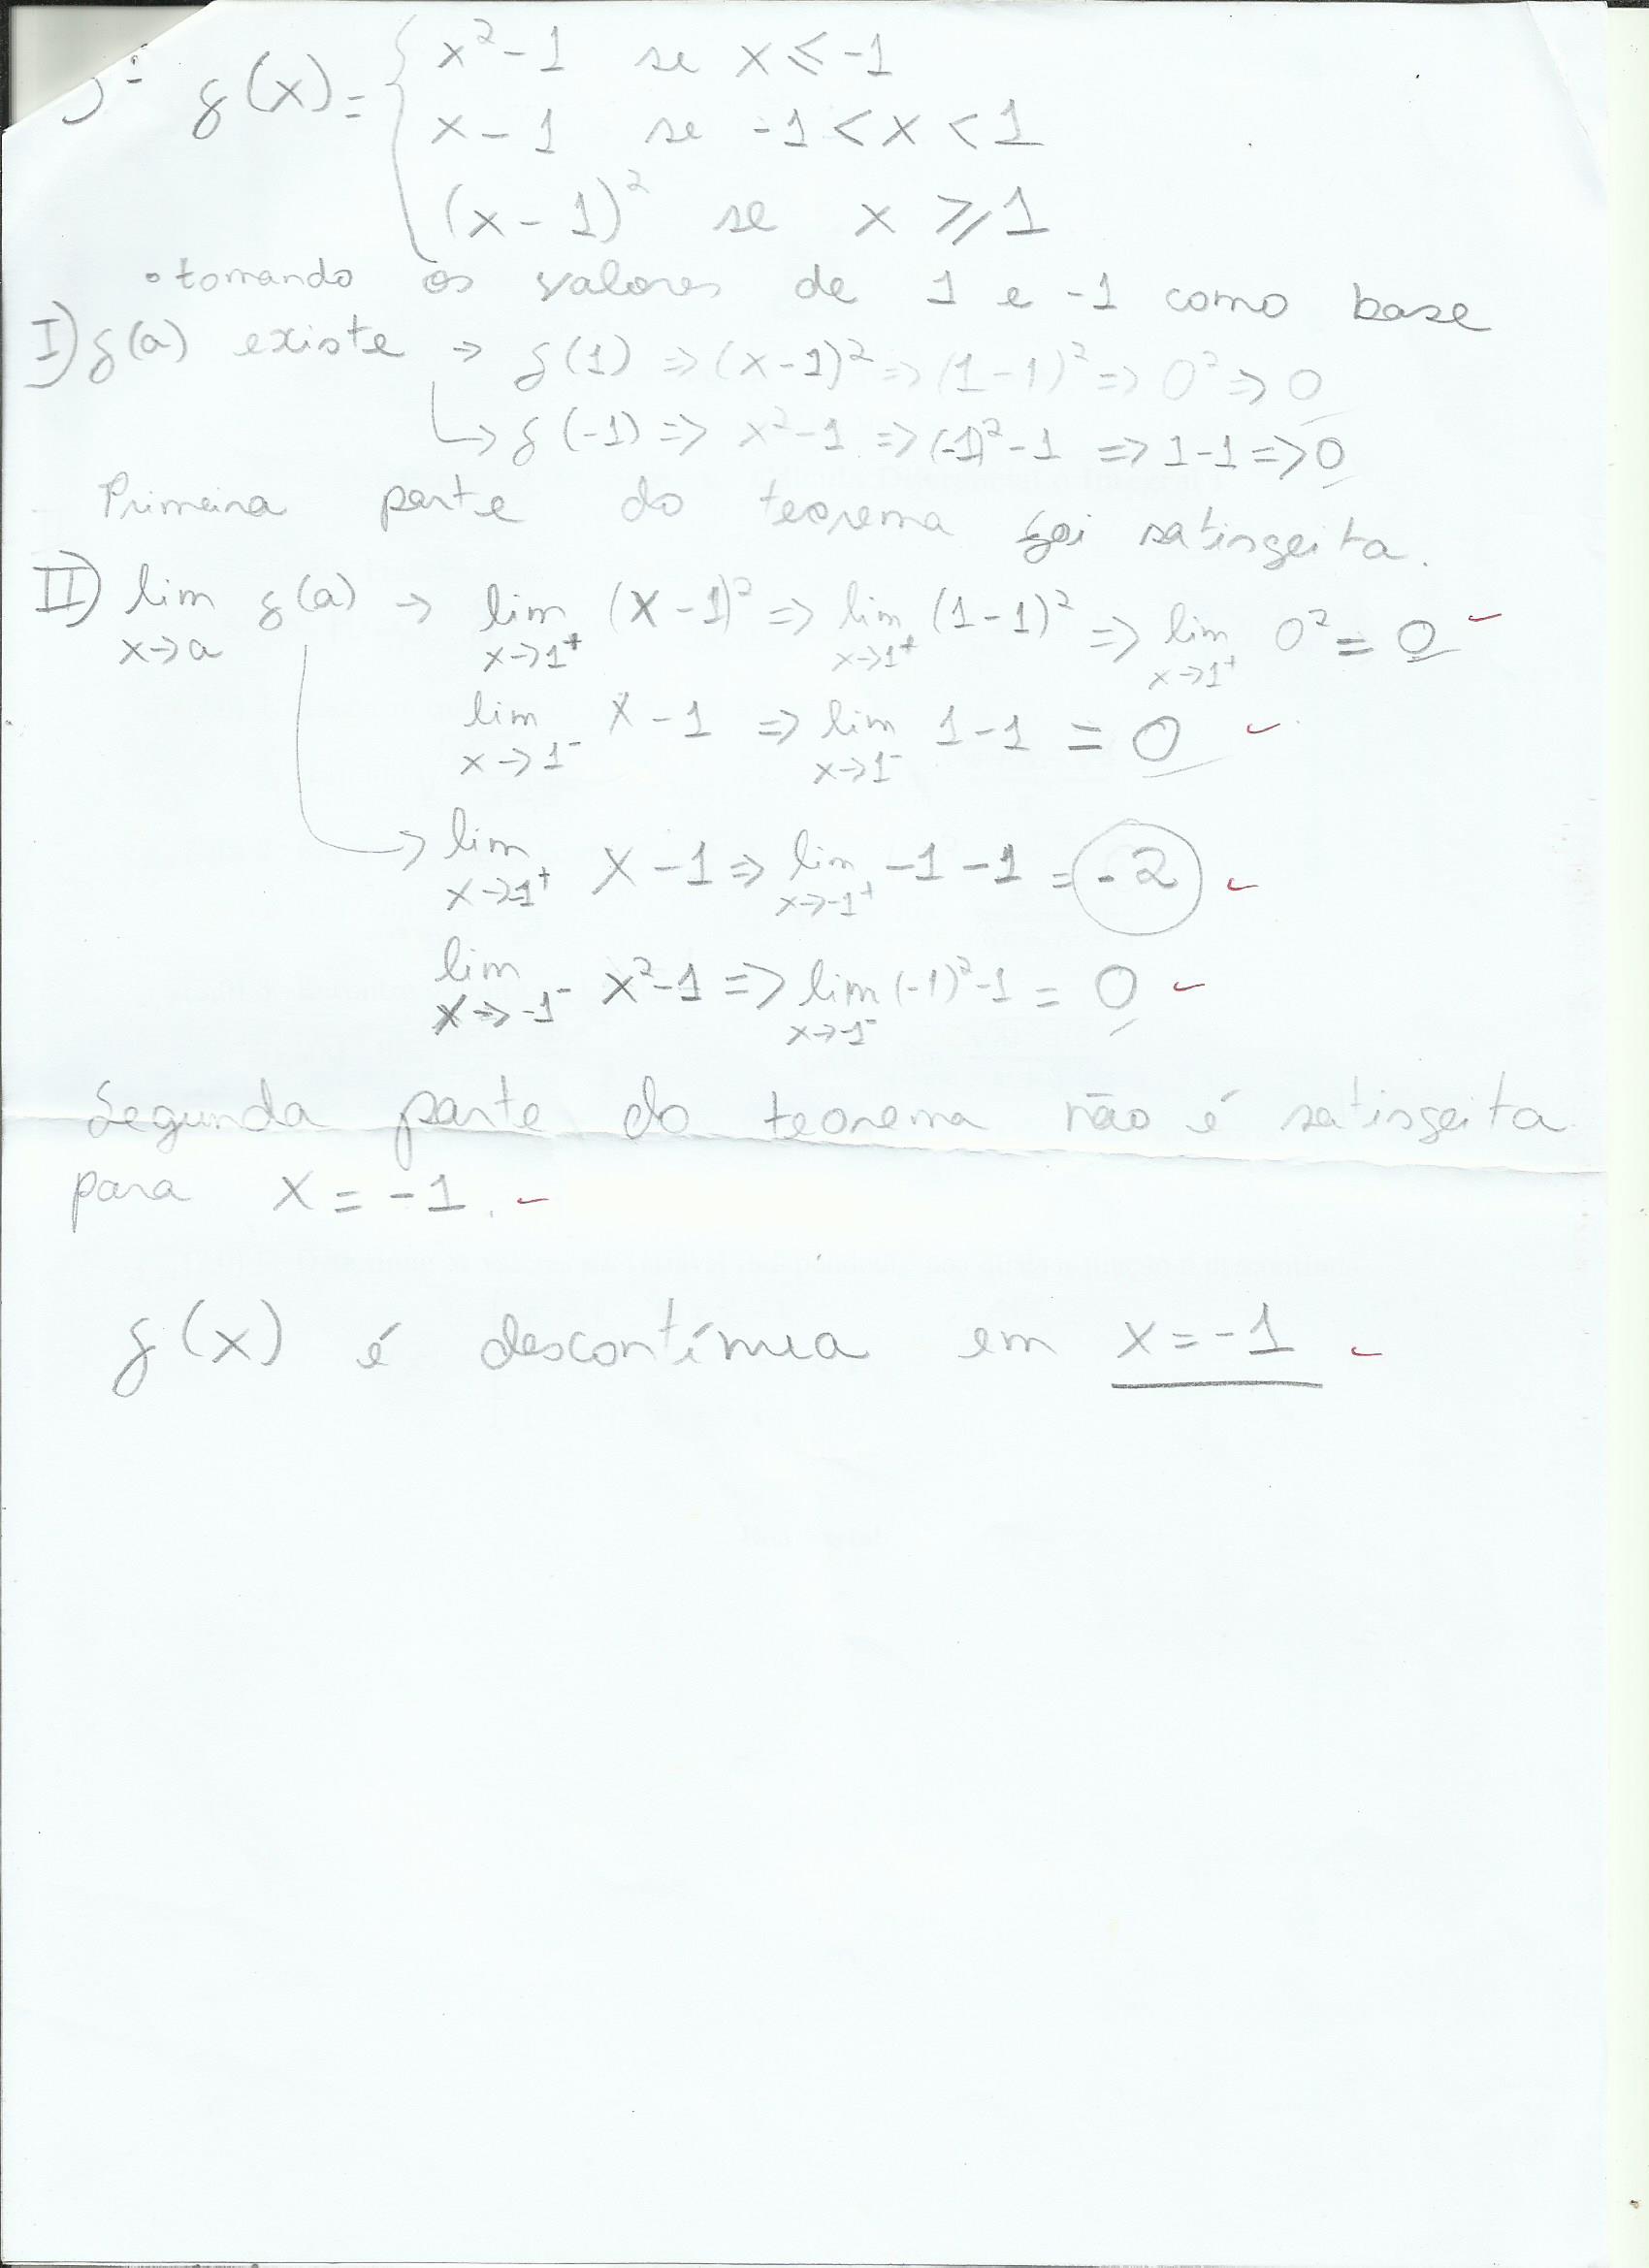 f(x) = { x² - 1 se x ≤ -1
x - 1 se -1 < x < 1
(x - 1)² se x ≥ 1
• tomando os valores de 1 e -1 como base
I) f(a) existe → f(1) ⇒ (x-1)² ⇒ (1-1)² ⇒ 0² ⇒ 0
↳ f(-1) ⇒ x²-1 ⇒ (-1)²-1 ⇒ 1-1 ⇒ 0
Primeira parte do teorema foi satisfeita.
II) lim x→a f(a) → lim x→1⁺ (x-1)² ⇒ lim x→1⁺ (1-1)² ⇒ lim x→1⁺ 0² = 0
lim x→1⁻ x-1 ⇒ lim x→1⁻ 1-1 = 0
→ lim x→-1⁺ x-1 ⇒ lim x→-1⁺ -1-1 = -2
lim x→-1⁻ x²-1 ⇒ lim x→-1⁻ (-1)²-1 = 0
Segunda parte do teorema não é satisfeita
para x = -1.
f(x) é descontínua em x = -1